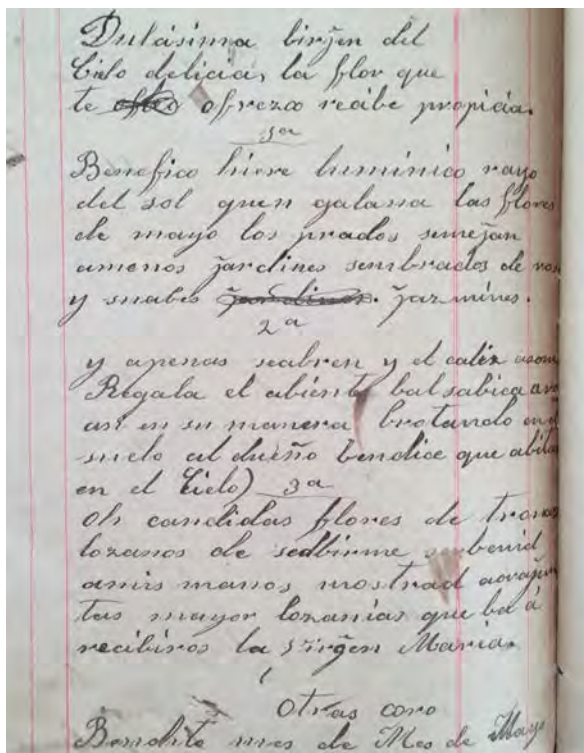 Dulcisima birjen del
Cielo delicia, la flor que
te ofrezco recibe propicia.
1ª
Benefico hiere luminico rayo
del sol quen galana las flores
de mayo los prados semejan
amenos jardines sembrados de
y suabes jardines. jazmines.
2ª
y apenas seabren y el caliz
Regala el abiente balsabica
asi en su manera brotando
suelo al dueño bendice que
en el Cielo) 3ª
Oh candidas flores de
lozanos de sedbirme benid
amis manos mostrad
tas mayor lozanias que ba á
recibiros la Virgen Maria.
Otras coro
Bendito mes de Mes de Mayo